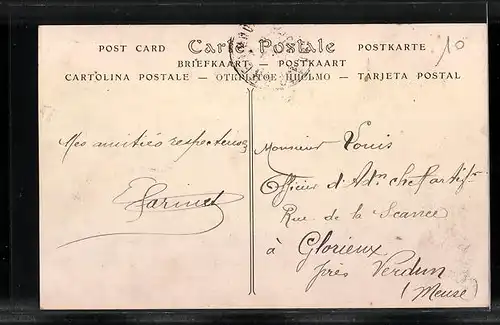 POST CARD Carte Postale POSTKARTE
BRIEFKAART — POSTKAART
CARTOLINA POSTALE — ОТКРЫТОЕ ПИСЬМО — TARJETA POSTAL
10
Mes amitiés respectueuses
Farinet
Monsieur Louis
Officier d'Adm
Rue de la Scance
à Glorieux
près Verdun
(Meuse)